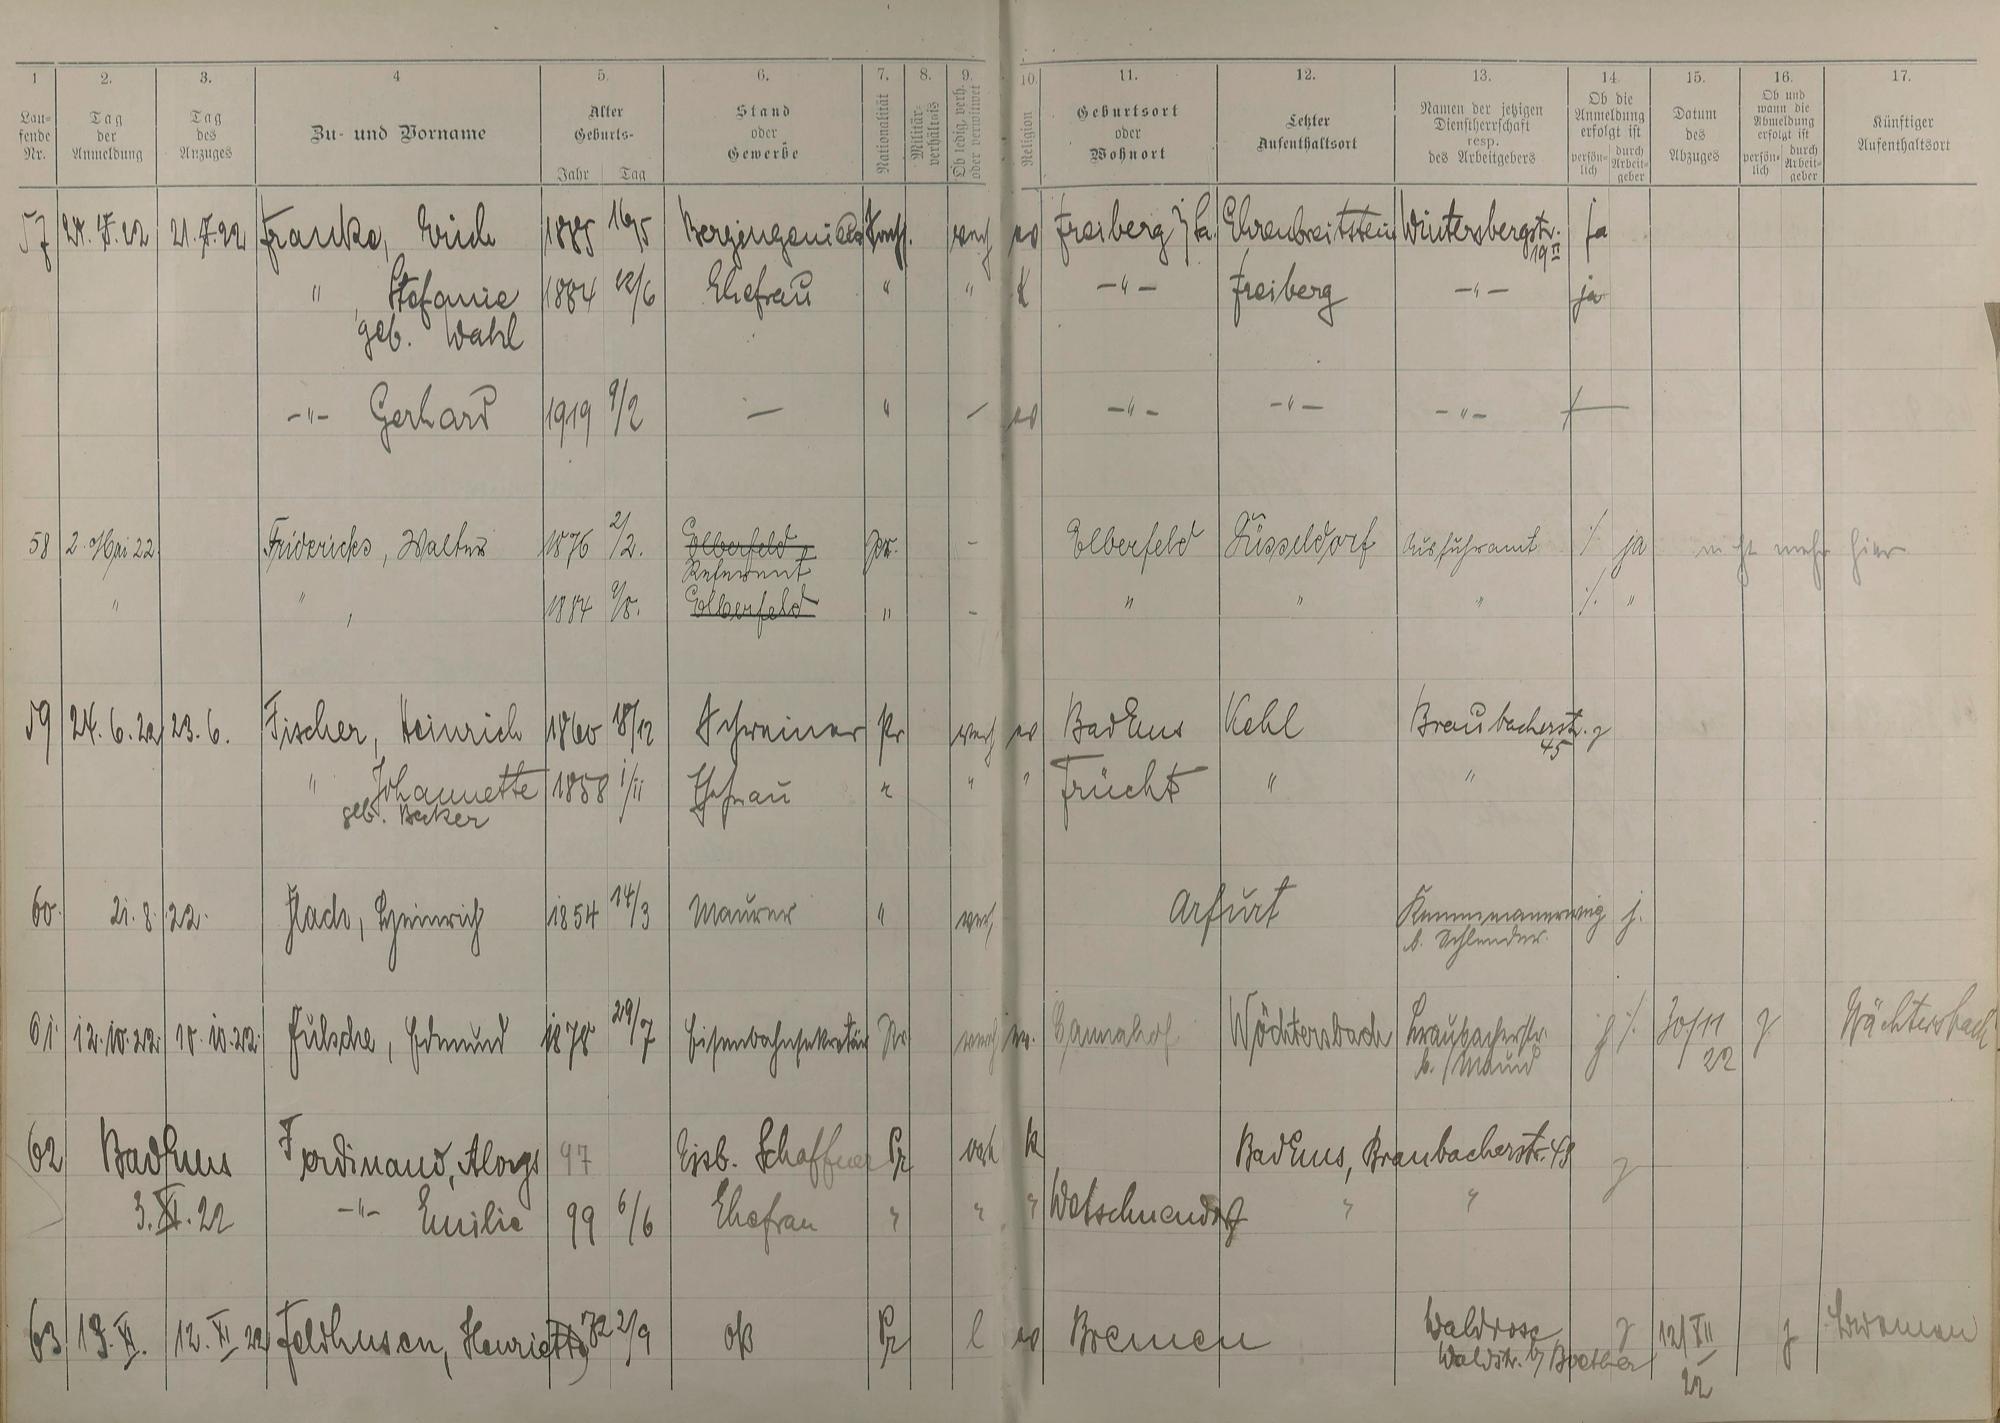 1 2. 3. 4 5. 6. 7. 8. 9. 10. 11. 12. 13. 14. 15. 16. 17.
Lau-
fende
Nr.
Tag
der
Anmeldung
Tag
des
Anzuges
Zu- und Vorname
Alter
Geburts-
Jahr Tag
Stand
oder
Gewerbe
Nationalität
Militär-
verhältnis
Ob ledig, verh.
oder verwitwet
Religion
Geburtsort
oder
Wohnort
Letzter
Aufenthaltsort
Namen der jetzigen
Dienstherrschaft
resp.
des Arbeitgebers
Ob die
Anmeldung
erfolgt ist
persön-
lich
durch
Arbeit-
geber
Datum
des
Abzuges
Ob und
wann die
Abmeldung
erfolgt ist
persön-
lich
durch
Arbeit-
geber
Künftiger
Aufenthaltsort
57 Franke, Erich 1885 16/5 verh ev Freiberg Ehrenbreitstein Wintersbergstr. ja
19 II
" Stefanie 1884 12/6 Ehefrau " " K -"- Freiberg -"- ja
geb. Wahl
-"- Gerhard 1919 9/2 — " — ev -"- -"- -"-
58 2. Mai 22 Fridericks, Walter 1876 2/2. Elberfeld pr. - Elberfeld Düsseldorf Ausfuhramt ./. ja nicht mehr hier
Referent
" " , 1884 Elberfeld " - " " " ./. "
59 24. 6. 22 23. 6. Fischer, Heinrich 1860 18/12 Schreiner Pr verh ev Bad Ems Kehl Braubacherstr. j
45
" Johannette 1858 1/11 Ehefrau " " " Frücht " "
geb. Becker
60. 21. 8. 22. Heinrich 1854 14/3 Maurer " verh Arfurt Kemmenauerweg j.
b. Schlender.
61. 12. 10. 22 10. 10. 22. Edmund 1878 29/7 Eisenbahnsekretär Pr. verh ev. Wächtersbach Braubacherstr. j ./. 30/11 j Wächtersbach
b. 22
62 Bad Ems Ferdinand, Aloys 97 Eisb. Schaffner Pr verh k Bad Ems, Braubacherstr. 48 j
3. XI. 22 -"- Emilie 99 6/6 Ehefrau " " " Welschneudorf " "
63 13. XI. 12. XI 22 Feldhusen, Henriette 72 2/9 oB Pr l ev Bremen Waldrose j 12/XII j Bremen
Waldstr. b/ Boether 22